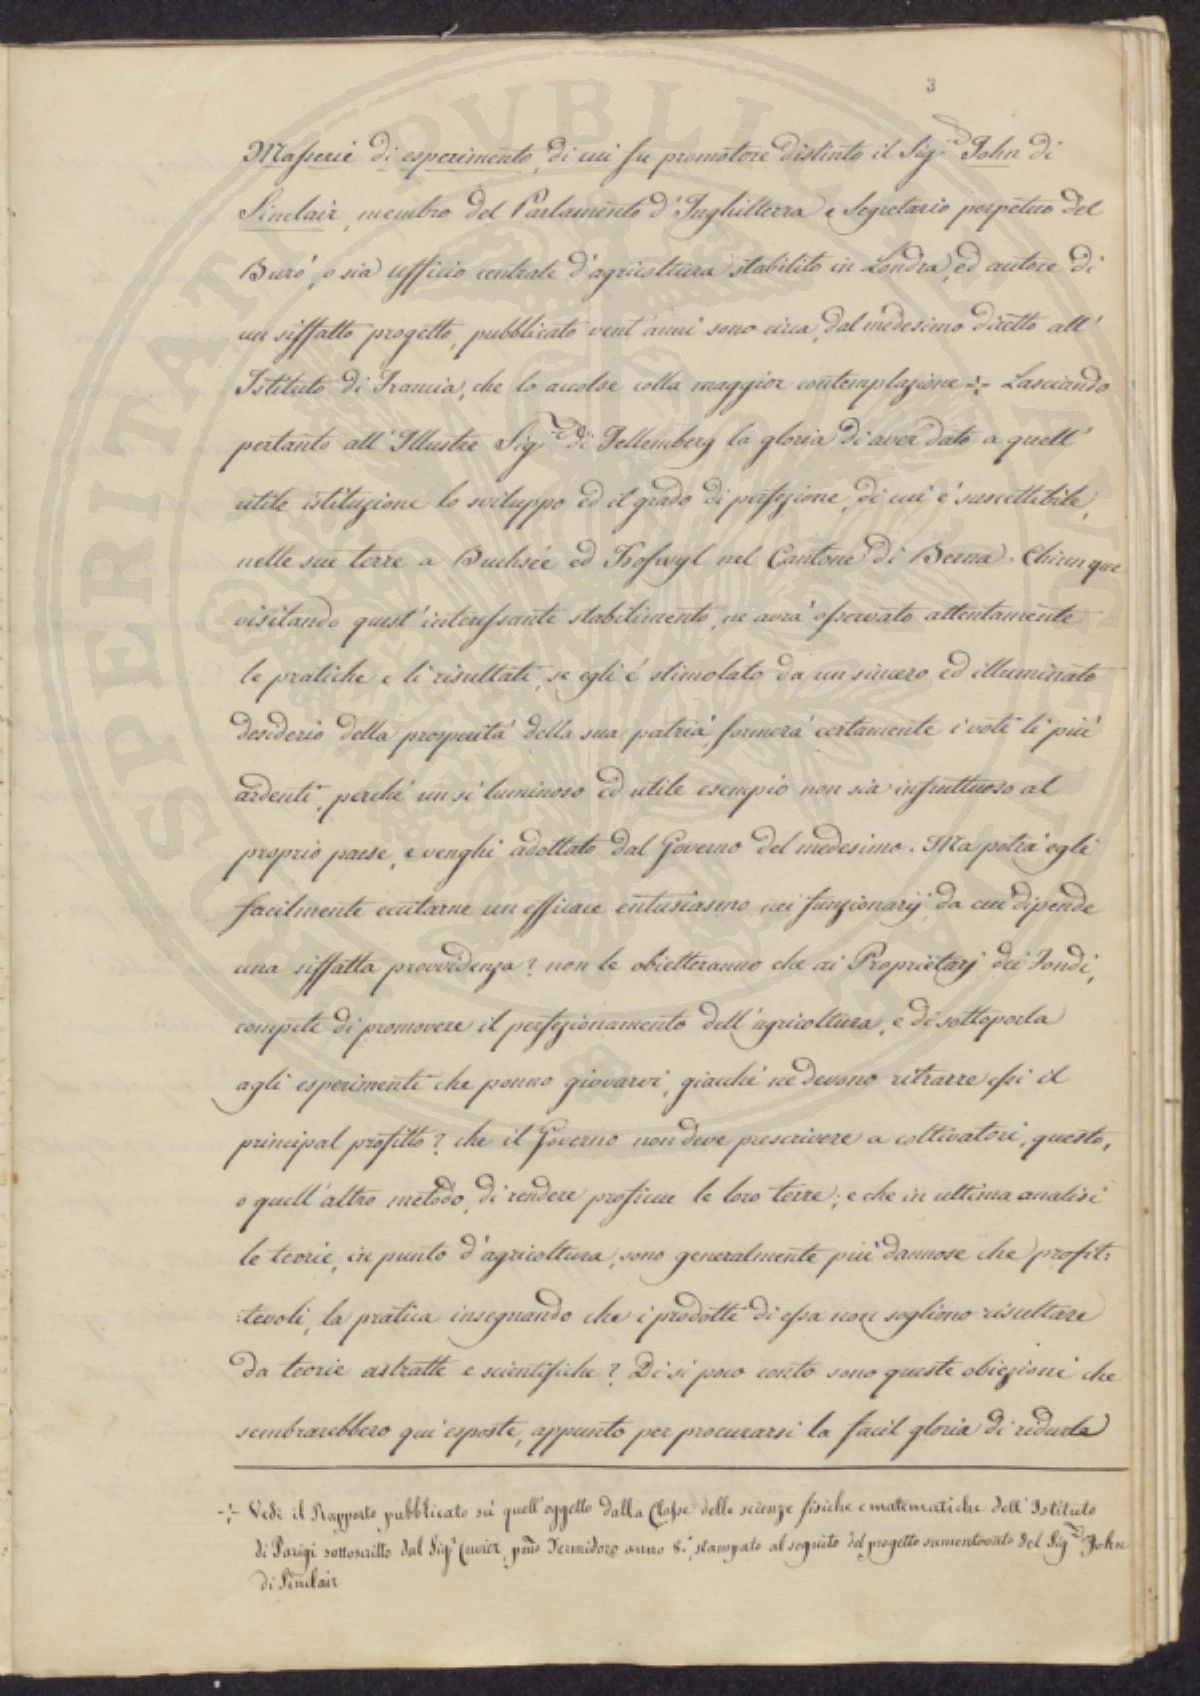 3
Masserie di esperimento, di cui fu promotore distinto il Sig.r John di
Sinclair, membro del Parlamento d'Inghilterra e Segretario perpetuo del
Buró, o sia ufficio centrale d'agricoltura stabilito in Londra, ed autore di
un siffatto progetto, pubblicato vent'anni sono circa, dal medesimo diretto all'
Istituto di Francia, che lo accolse colla maggior contemplazione -:- Lasciando
pertanto all'Illustre Sig.r di Fellemberg la gloria di aver dato a quell'
utile istituzione lo sviluppo ed il grado di perfezione, di cui é suscettibile,
nelle sue terre a Buchsée ed Hofwyl nel Cantone di Berna. Chiunque
visitando quest'interessante stabilimento, ne avrá osservato attentamente
le pratiche e li risultati, se egli é stimolato da un sincero ed illuminato
desiderio della prosperitá della sua patria, formerá certamente i voti li piú
ardenti, perché un si luminoso ed utile esempio non sia infruttuoso al
proprio paese, e venghi adottato dal Governo del medesimo. Ma potrá egli
facilmente eccitarne un efficace entusiasmo nei funzionarij da cui dipende
una siffatta provvidenza? non le obietteranno che ai Proprietarj dei Fondi,
compete di promovere il perfezionamento dell'agricoltura, e di sottoporla
agli esperimenti che ponno giovarvi, giacché ne devono ritrarre essi il
principal profitto? che il Governo non deve prescrivere a coltivatori, questo,
o quell'altro metodo, di rendere proficue le loro terre; e che in ultima analisi
le teorie, in punto d'agricoltura, sono generalmente piú dannose che profit:
:tevoli, la pratica insegnando che i prodotti di essa non sogliono risultare
da teorie astratte e scientifiche? Di si poco conto sono queste obiezioni che
sembrarebbero qui esposte, appunto per procurarsi la facil gloria di ridurle
-:- Vedi il Rapporto pubblicato sú quell'oggetto dalla Classe delle scienze fisiche e matematiche dell'Istituto
di Parigi sottoscritto dal Sig.r Cuvier, pmo Termidoro anno 8.°, stampato al seguito del progetto summentovato del Sig.r John
di Sinclair
SPERITATI PUBLICAE